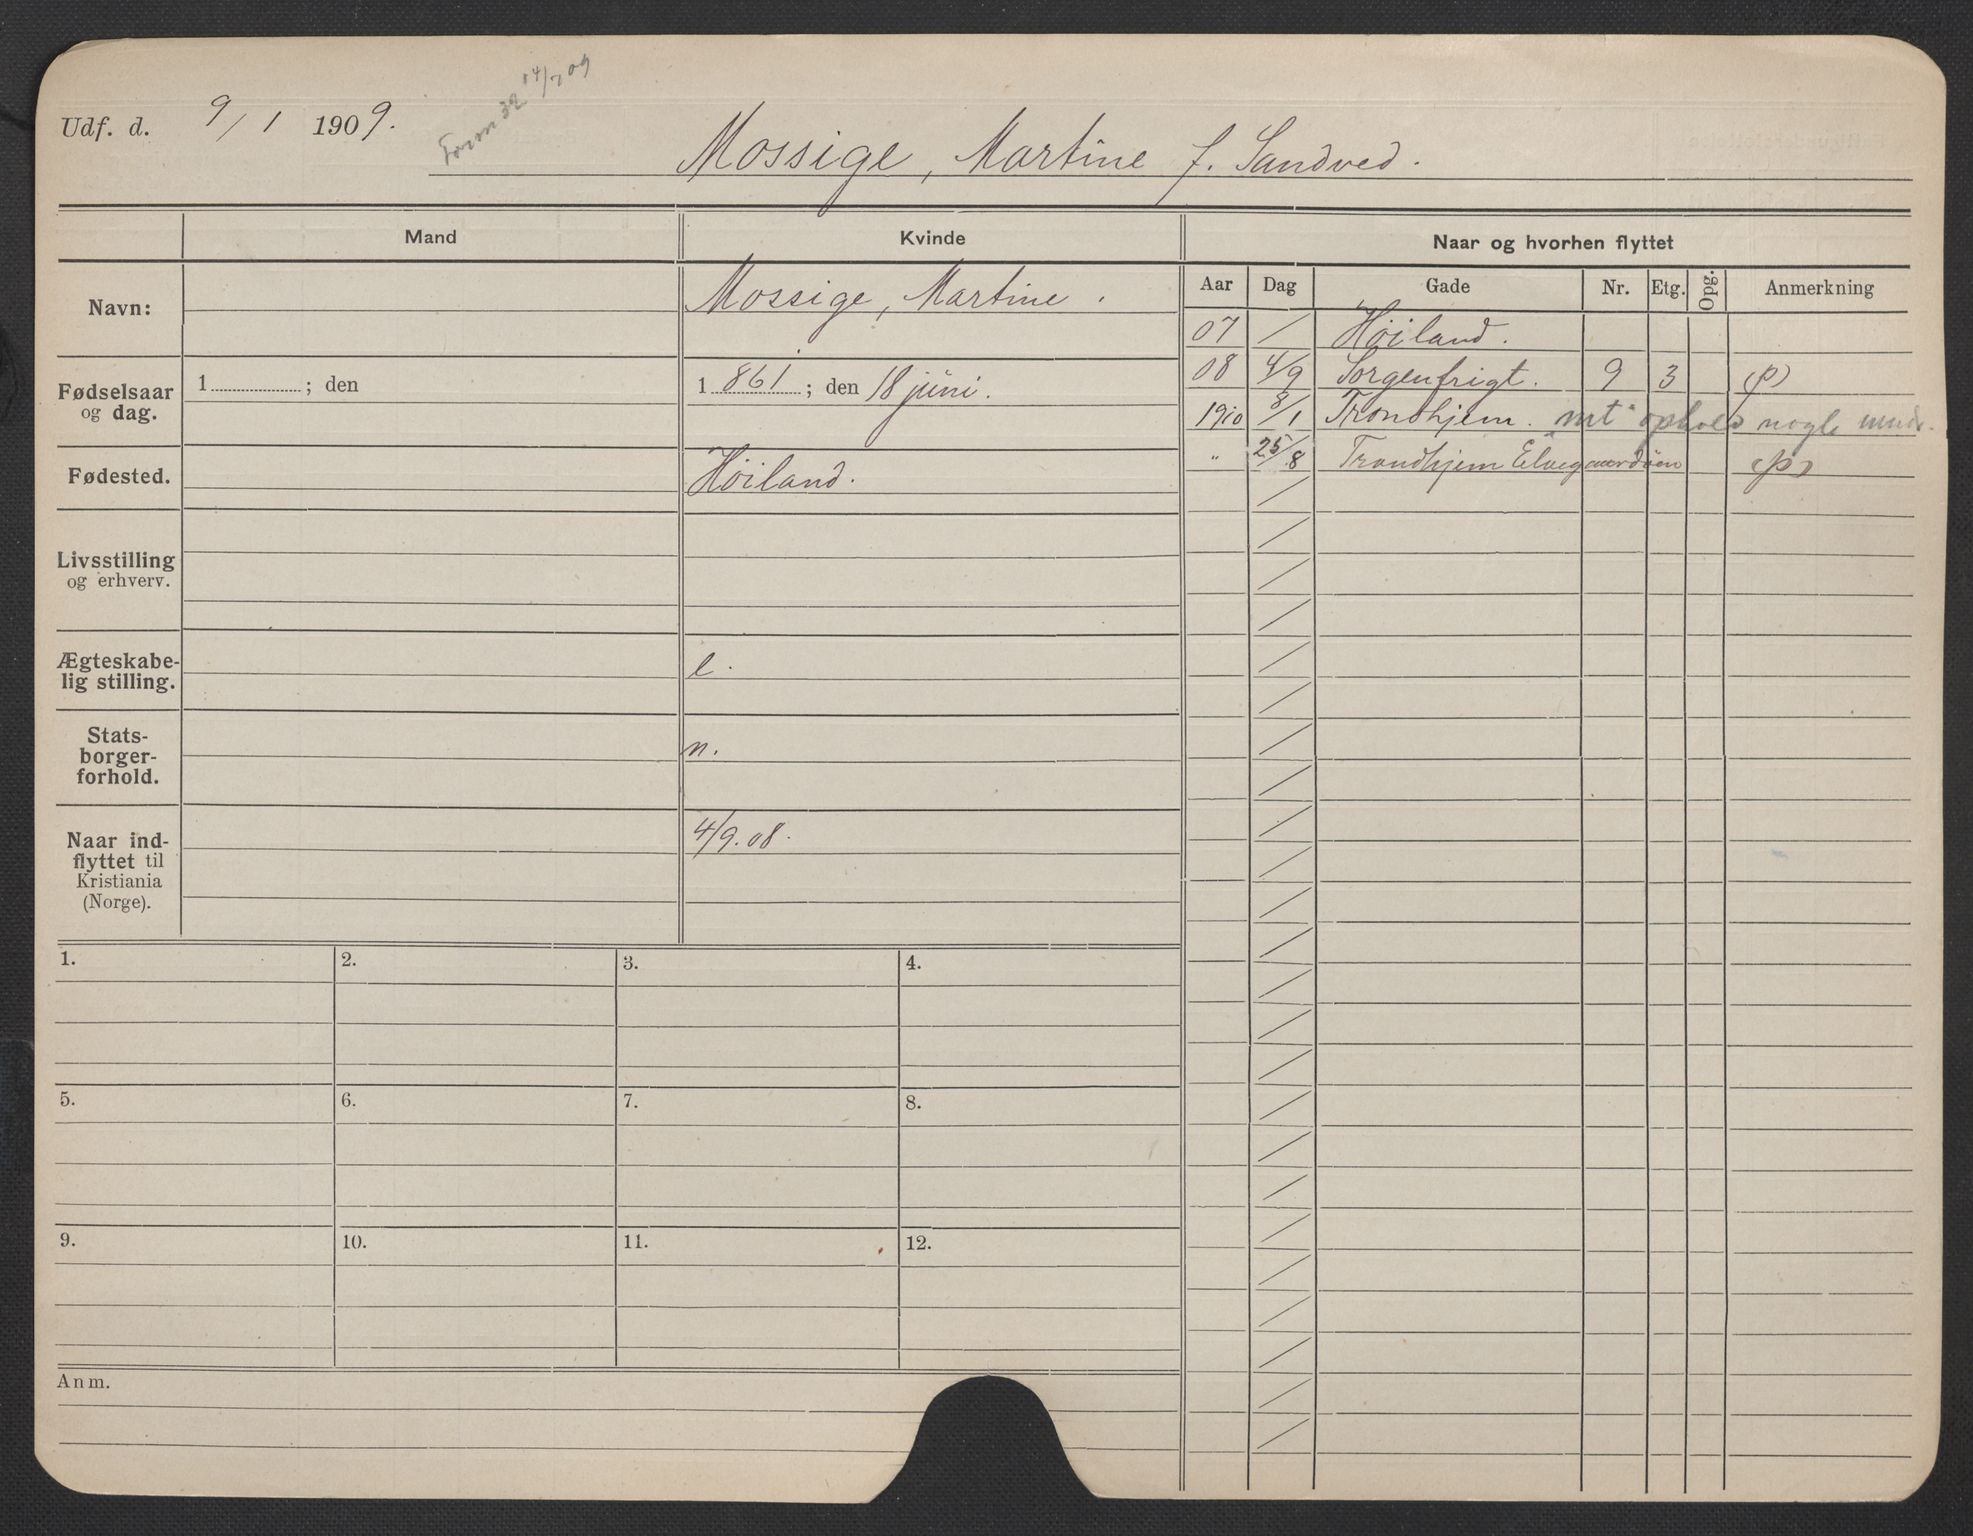 Udf. d. 9/1 1909.
Form 32 14/7 09
Mossige, Martine f. Sandved.
Mand
Kvinde
Naar og hvorhen flyttet
Navn:
Mossige, Martine.
Fødselsaar og dag.
1 ; den
1 861 ; den 18 juni.
Fødested.
Höiland.
Livsstilling og erhverv.
Ægteskabe-
lig stilling.
e.
Stats-
borger-
forhold.
n.
Naar ind-
flyttet til
Kristiania
(Norge).
4/9.08.
Aar Dag Gade Nr. Etg. Opg. Anmerkning
07 / Höiland.
08 4/9 Sorgenfrigt. 9 3 (p)
1910 3/1 Trondhjem. mt. ophold nogle mndr.
" 25/8 Trondhjem Elvegaardöen (p)
1. 2. 3. 4.
5. 6. 7. 8.
9. 10. 11. 12.
Anm.